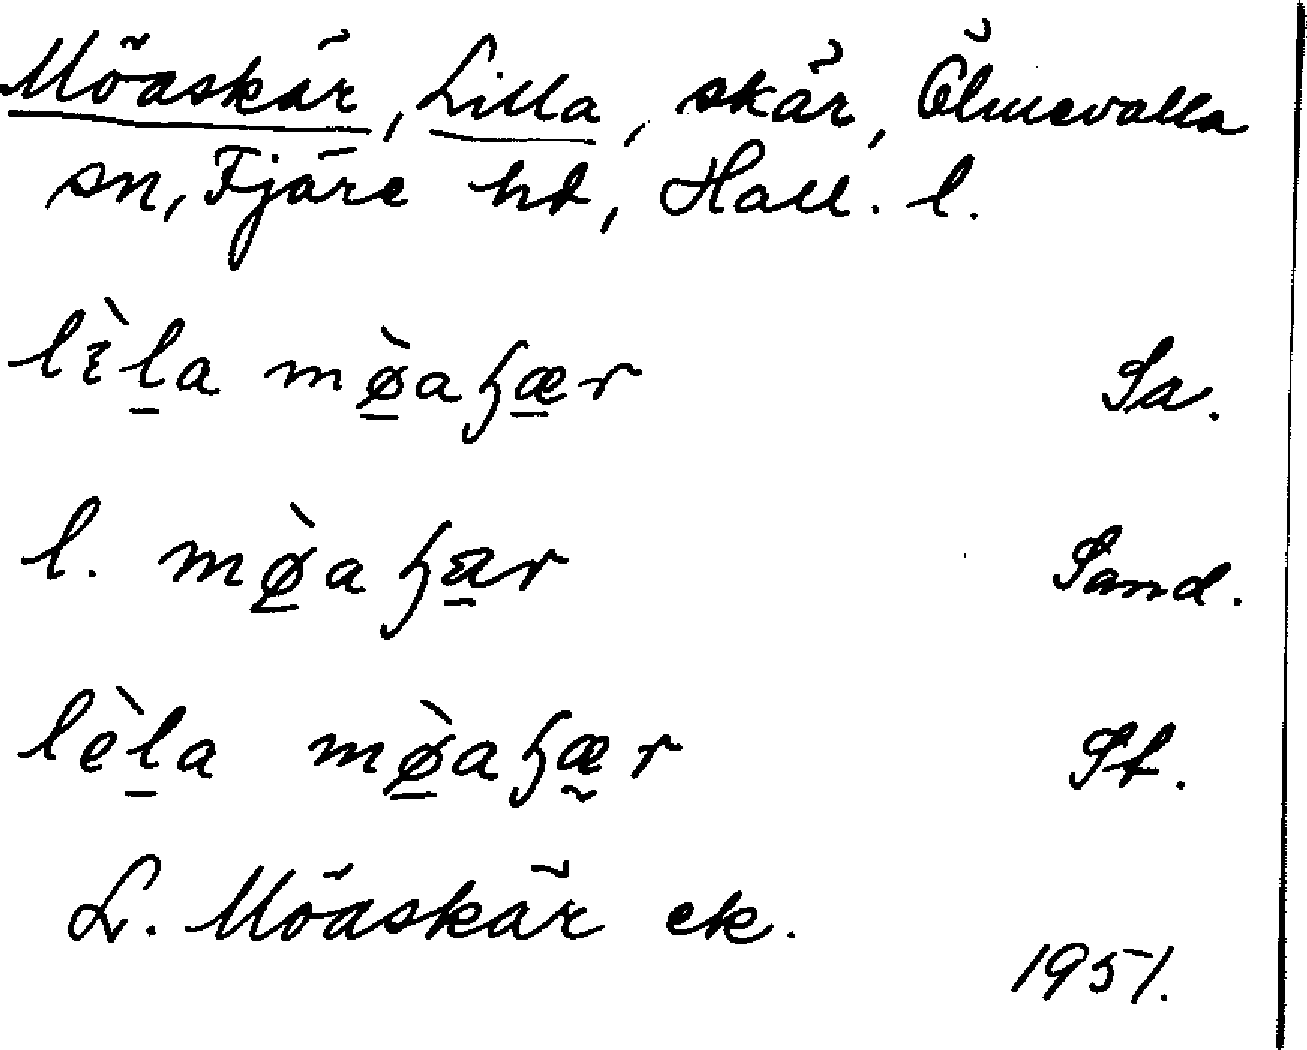 Möaskär, Lilla, skär, Ölmevalla
sn, Fjäre hd, Hall. l.
lɛ̀l̠a mø̠̀aɧæ̠r Sa.
l. mø̠̀aɧa̠r Sand.
lèl̠a mø̠̀aɧæ̰r St.
L. Möaskär ek.
1951.